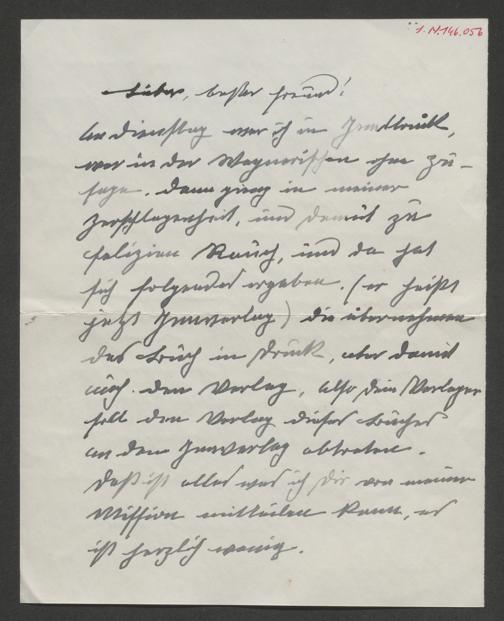 I. N. 146.056
Lieber, bester Freund!
Am Dienstag war ich in Innsbruck,
war in der Wagnerischen ohne Zu-
sage. Dann ging in meiner
Zerschlagenheit, und Demut zu
Felizian Rauch, und da hat
sich folgendes ergeben. (er heißt
jetzt Innverlag) die übernehmen
das Buch in Druck, aber damit
auch den Verlag, also Dein Verleger
soll den Verlag dieses Buches
an den Innverlag abtreten.
Daß ist alles was ich Dir von meiner
Mission mitteilen kann, es
ist herzlich wenig.